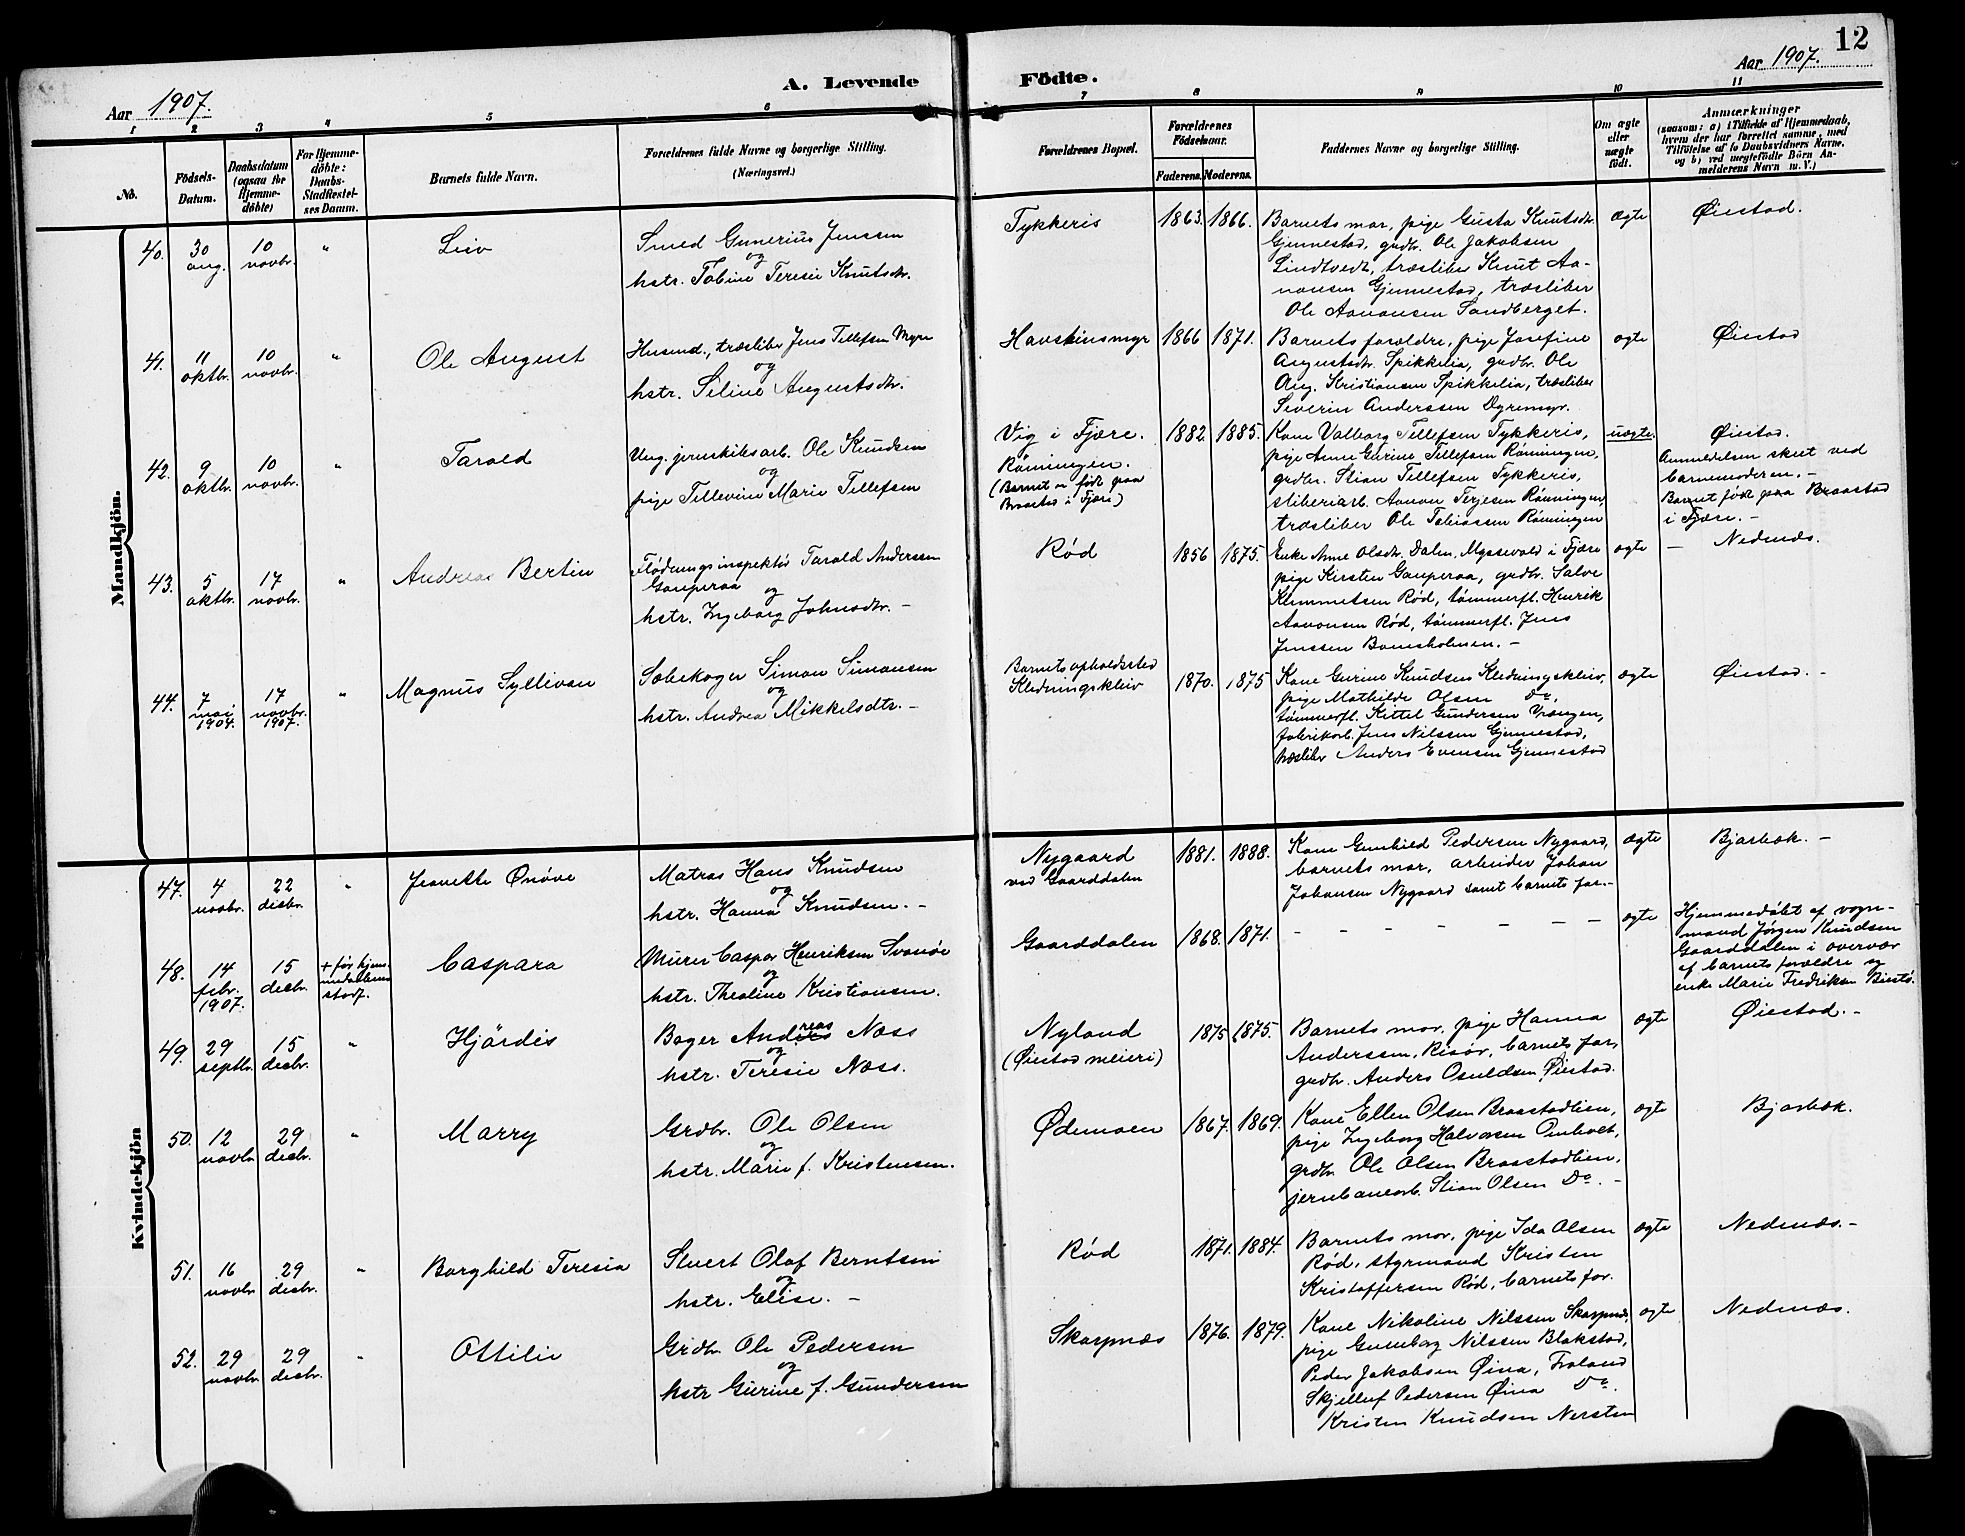 12
Aar 1907.
A. Levende
Födte.
Aar 1907.
1 2 3 4 5 6
7 8 9 10 11
No.
Födsels-
Datum.
Daabsdatum
(ogsaa for
Hjemme-
döbte)
For Hjemme-
döbte:
Daabs-
Stadfæstel-
ses Datum.
Barnets fulde Navn.
Forældrenes fulde Navne og borgerlige Stilling.
(Næringsvei.)
Forældrenes Bopæl.
Forældrenes
Födselsaar.
Faderens. Moderens.
Faddernes Navne og borgerlige Stilling.
Om ægte
eller
uægte
födt.
Anmærkninger
(saasom: a) i Tilfælde af Hjemmedaab,
hvem der har forrettet samme, med
Tilföielse af to Daabsvidners Navne.
og b) ved uægtefödte Börn An-
melderens Navn m.V.)
Mandkjön.
40. 30 aug. 10 novbr. "
Liv
Smed Gunerius Jenssen
og
hstr. Tobine Teresie Knutsdtr.
Tykkeris 1863. 1866.
Barnets mor, pige Gusta Knutsdtr.
Gjennestad, grdbr. Ole Jakobsen
Lindtvedt, træsliber Knut Aa-
nonsen Gjennestad, træsliber
Ole Aanonsen Sandberget.
ægte Øiestad.
41. 11 oktbr. 10 novbr. "
Ole August
Husmd., træsliber Jens Tellefsen Myre
og
hstr. Seline Augustsdtr.
Havstinsmyr 1866 1871.
Barnets forældre, pige Josefine
Augustsdtr. Spikkelia, grdbr. Ole
Aug. Kristiansen Spikkelia, træsliber
Severin Anderssen Dyremyr.
ægte Øiestad
42. 9 oktbr. 10 novbr. "
Tarald
Ung. jernskibsarb. Ole Knudsen
og
pige Tellevine Marie Tellefsen
Vig i Fjære. 1882. 1885.
Rønningen.
(Barnet er født paa
Braastad i Fjære)
Kone Valborg Tellefsen Tykkeris,
pige Anne Gurine Tellefsen Rønningen,
grdbr. Stian Tellefsen Tykkeris,
sliberiarb. Aanon Terjesen Rønningen,
træsliber Ole Tobiassen Rønningen
uægte. Øiestad.
Anmeldelsen skeet ved
barnemoderen. -
Barnet født paa Braastad
i Fjære. -
43. 5 oktbr. 17 novbr. "
Andreas Bertin
Flødningsinspektør Tarald Andersen
Gauperaa og
hstr. Ingeborg Johnsdtr. -
Rød 1856 1875.
Enke Anne Olsdtr. Dalen, Myssevold i Fjære
pige Kirsten Gauperaa, grdbr. Salve
Klemmetsen Rød, tømmerfl. Henrik
Aanonsen Rød, tømmerfl. Jens
Jenssen Bomsholmen. -
ægte - Nednæs.
44. 7 mai 1904. 17 novbr. 1907. "
Magnus Syllivan
Sæbekoger Simon Simonsen
og
hstr. Andrea Mikkelsdtr. -
Barnets opholdssted
Klodningskleiv 1870. 1875
Kone Gurine Knudsen Klodningskleiv,
pige Mathilde Olsen Do.
tømmerfl. Kittel Gundersen Vrangen,
fabrikarb. Jens Nilssen Gjennestad,
træsliber Anders Evensen Gjennestad
ægte Øiestad. -
Kvindekjön
47. 4 novbr. 22 decbr. "
Jeanette Ønøve
Matros Hans Knudsen
og
hstr. Hanna Knudsen. -
Nygaard 1881. 1888.
ved Gaarddalen
Kone Gunhild Pedersen Nygaard,
barnets mor, arbeider Johan
Johansen Nygaard samt barnets far. -
ægte Bjorbæk. -
48. 14 febr. 1907. 15 decbr. + før hjem-
medaabens
stadf.
Caspara
Murer Caspar Henriksen Svanøe
og
hstr. Thealine Kristiansen.
Gaarddalen 1868. 1871. - - - - - - -
ægte
Hjemmedøbt af vogn-
mand Jørgen Knudsen
Gaarddalen i overvær
af barnets forældre og
enke Marie Fredriksen
49. 29 septbr. 15 decbr. "
Hjørdis
Bager Andreas Næss
og
hstr. Teresie Næss.
Nyland 1875 1875.
(Øiestad meieri)
Barnets mor, pige Hanna
Anderssen, Risør, barnets far,
grdbr. Anders Osuldsen, Øiestad.
ægte Øiestad. -
50. 12 novbr. 29 decbr. "
Marry
Grdbr. Ole Olsen
og
hstr. Marie f. Kristensen.
Ødemoen 1867. 1869.
Kone Ellen Olsen Braastadlien,
pige Ingeborg Halvorsen Omholt,
grdbr. Ole Olsen Braastadlien,
jernbanearb. Stian Olsen Do. -
ægte Bjorbæk.
51. 16 novbr. 29 decbr. "
Borghild Teresia
Stuert Olaf Berntsen
og
hstr. Elise. -
Rød 1871. 1884.
Barnets mor, pige Ida Olsen
Rød, styrmand Kristen
Kristoffersen Rød, barnets far.
ægte Nednæs. -
52. 29 novbr. 29 decbr. "
Ottilie
Grdbr. Ole Pedersen
og
hstr Gurine f. Gundersen
Skarpnæs 1876. 1879.
Kone Nikoline Nilssen Skarpnæs,
pige Gunnborg Nilssen Blakstad,
Peder Jakobsen Øina, Froland
Skjelluf Pedersen Øina Do.
Kristen Knudsen Nersten
ægte Nednæs.